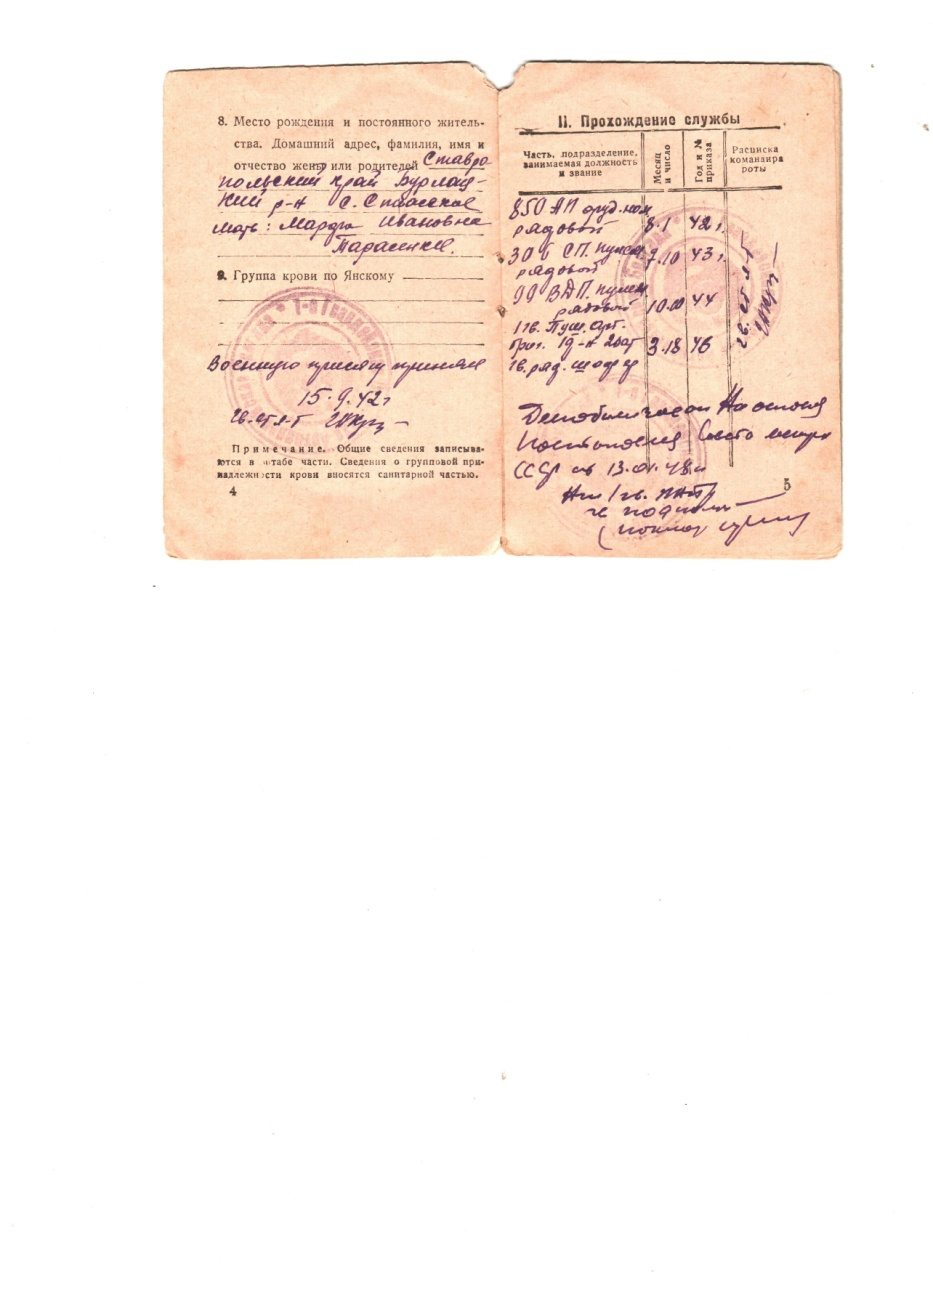 8. Место рождения и постоянного житель-
ства. Домашний адрес, фамилия, имя и
отчество жены или родителей Ставро
польский край Бурлац-
кий р-н С. Спасское
мать: Марфа Ивановна
Тарасенко.
9. Группа крови по Янскому
Военную присягу принял
15.9.42 г
гв. ст. л-т
Примечание. Общие сведения записыва-
ются в штабе части. Сведения о групповой при-
надлежности крови вносятся санитарной частью.
4
1-я Гвардейская
II. Прохождение службы
Часть, подразделение, занимаемая должность и звание
Месяц и число
Год и № приказа
Расписка командира роты
850 АП оруд. ном
рядовой 8.1 42 г.
СП. пулем 7.10 43 г.
рядовой
99 ВДП. пулем
рядовой 10.00 44
1 гв. Пуш. арт.
3.18 46
гв. ряд. шофер
гв. ст. л-т
Демобилизован На основан
Постановления Совета минис
СССР от 13.01.48 г
5